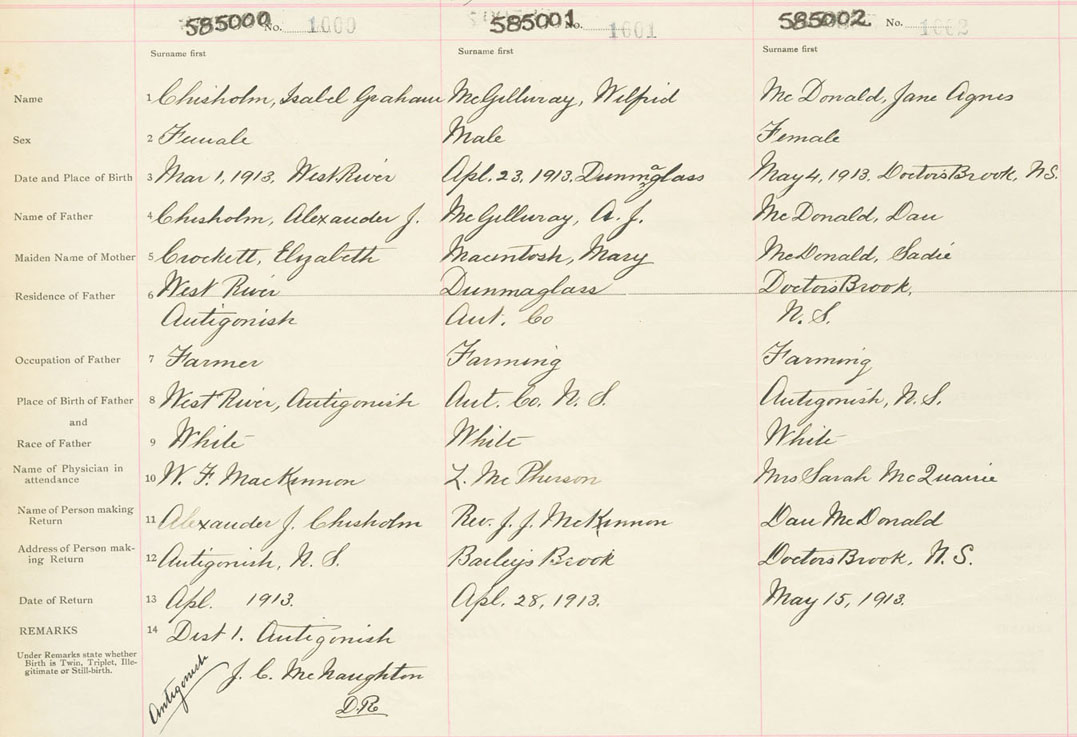 585000 No. 1600 585001 No. 1601 585002 No. 1602
Surname first Surname first Surname first
Name 1 Chisholm, Isabel Graham McGillivray, Wilfrid McDonald, Jane Agnes
Sex 2 Female Male Female
Date and Place of Birth 3 Mar 1, 1913, West River Apl. 23, 1913, Dunmaglass May 4, 1913, Doctors Brook, N.S.
Name of Father 4 Chisholm, Alexander J. McGillivray, A. J. McDonald, Dan
Maiden Name of Mother 5 Crockett, Elyzabeth Macintosh, Mary McDonald, Sadie
Residence of Father 6 West River Dunmaglass Doctors Brook,
Antigonish Ant. Co N. S.
Occupation of Father 7 Farmer Farming Farming
Place of Birth of Father 8 West River, Antigonish Ant. Co. N. S. Antigonish, N. S.
and
Race of Father 9 White White White
Name of Physician in
attendance 10 W. F. MacKinnon L. McPherson Mrs Sarah McQuarrie
Name of Person making
Return 11 Alexander J. Chisholm Rev. J. J. McKinnon Dan McDonald
Address of Person mak-
ing Return 12 Antigonish, N. S. Baileys Brook Doctors Brook, N. S.
Date of Return 13 Apl. 1913. Apl. 28, 1913. May 15, 1913.
REMARKS 14 Dist 1. Antigonish
Under Remarks state whether
Birth is Twin, Triplet, Ille-
gitimate or Still-birth.
Antigonish J. C. McNaughton
D.R